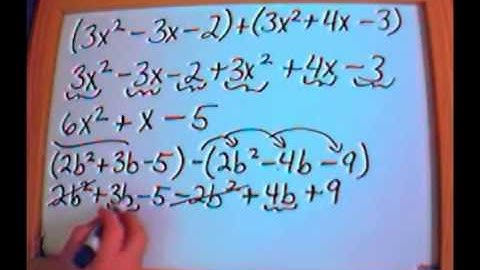 (3x² - 3x - 2) + (3x² + 4x - 3)
3x² - 3x - 2 + 3x² + 4x - 3
6x² + x - 5
(2b² + 3b - 5) - (2b² - 4b - 9)
2b² + 3b - 5 - 2b² + 4b + 9